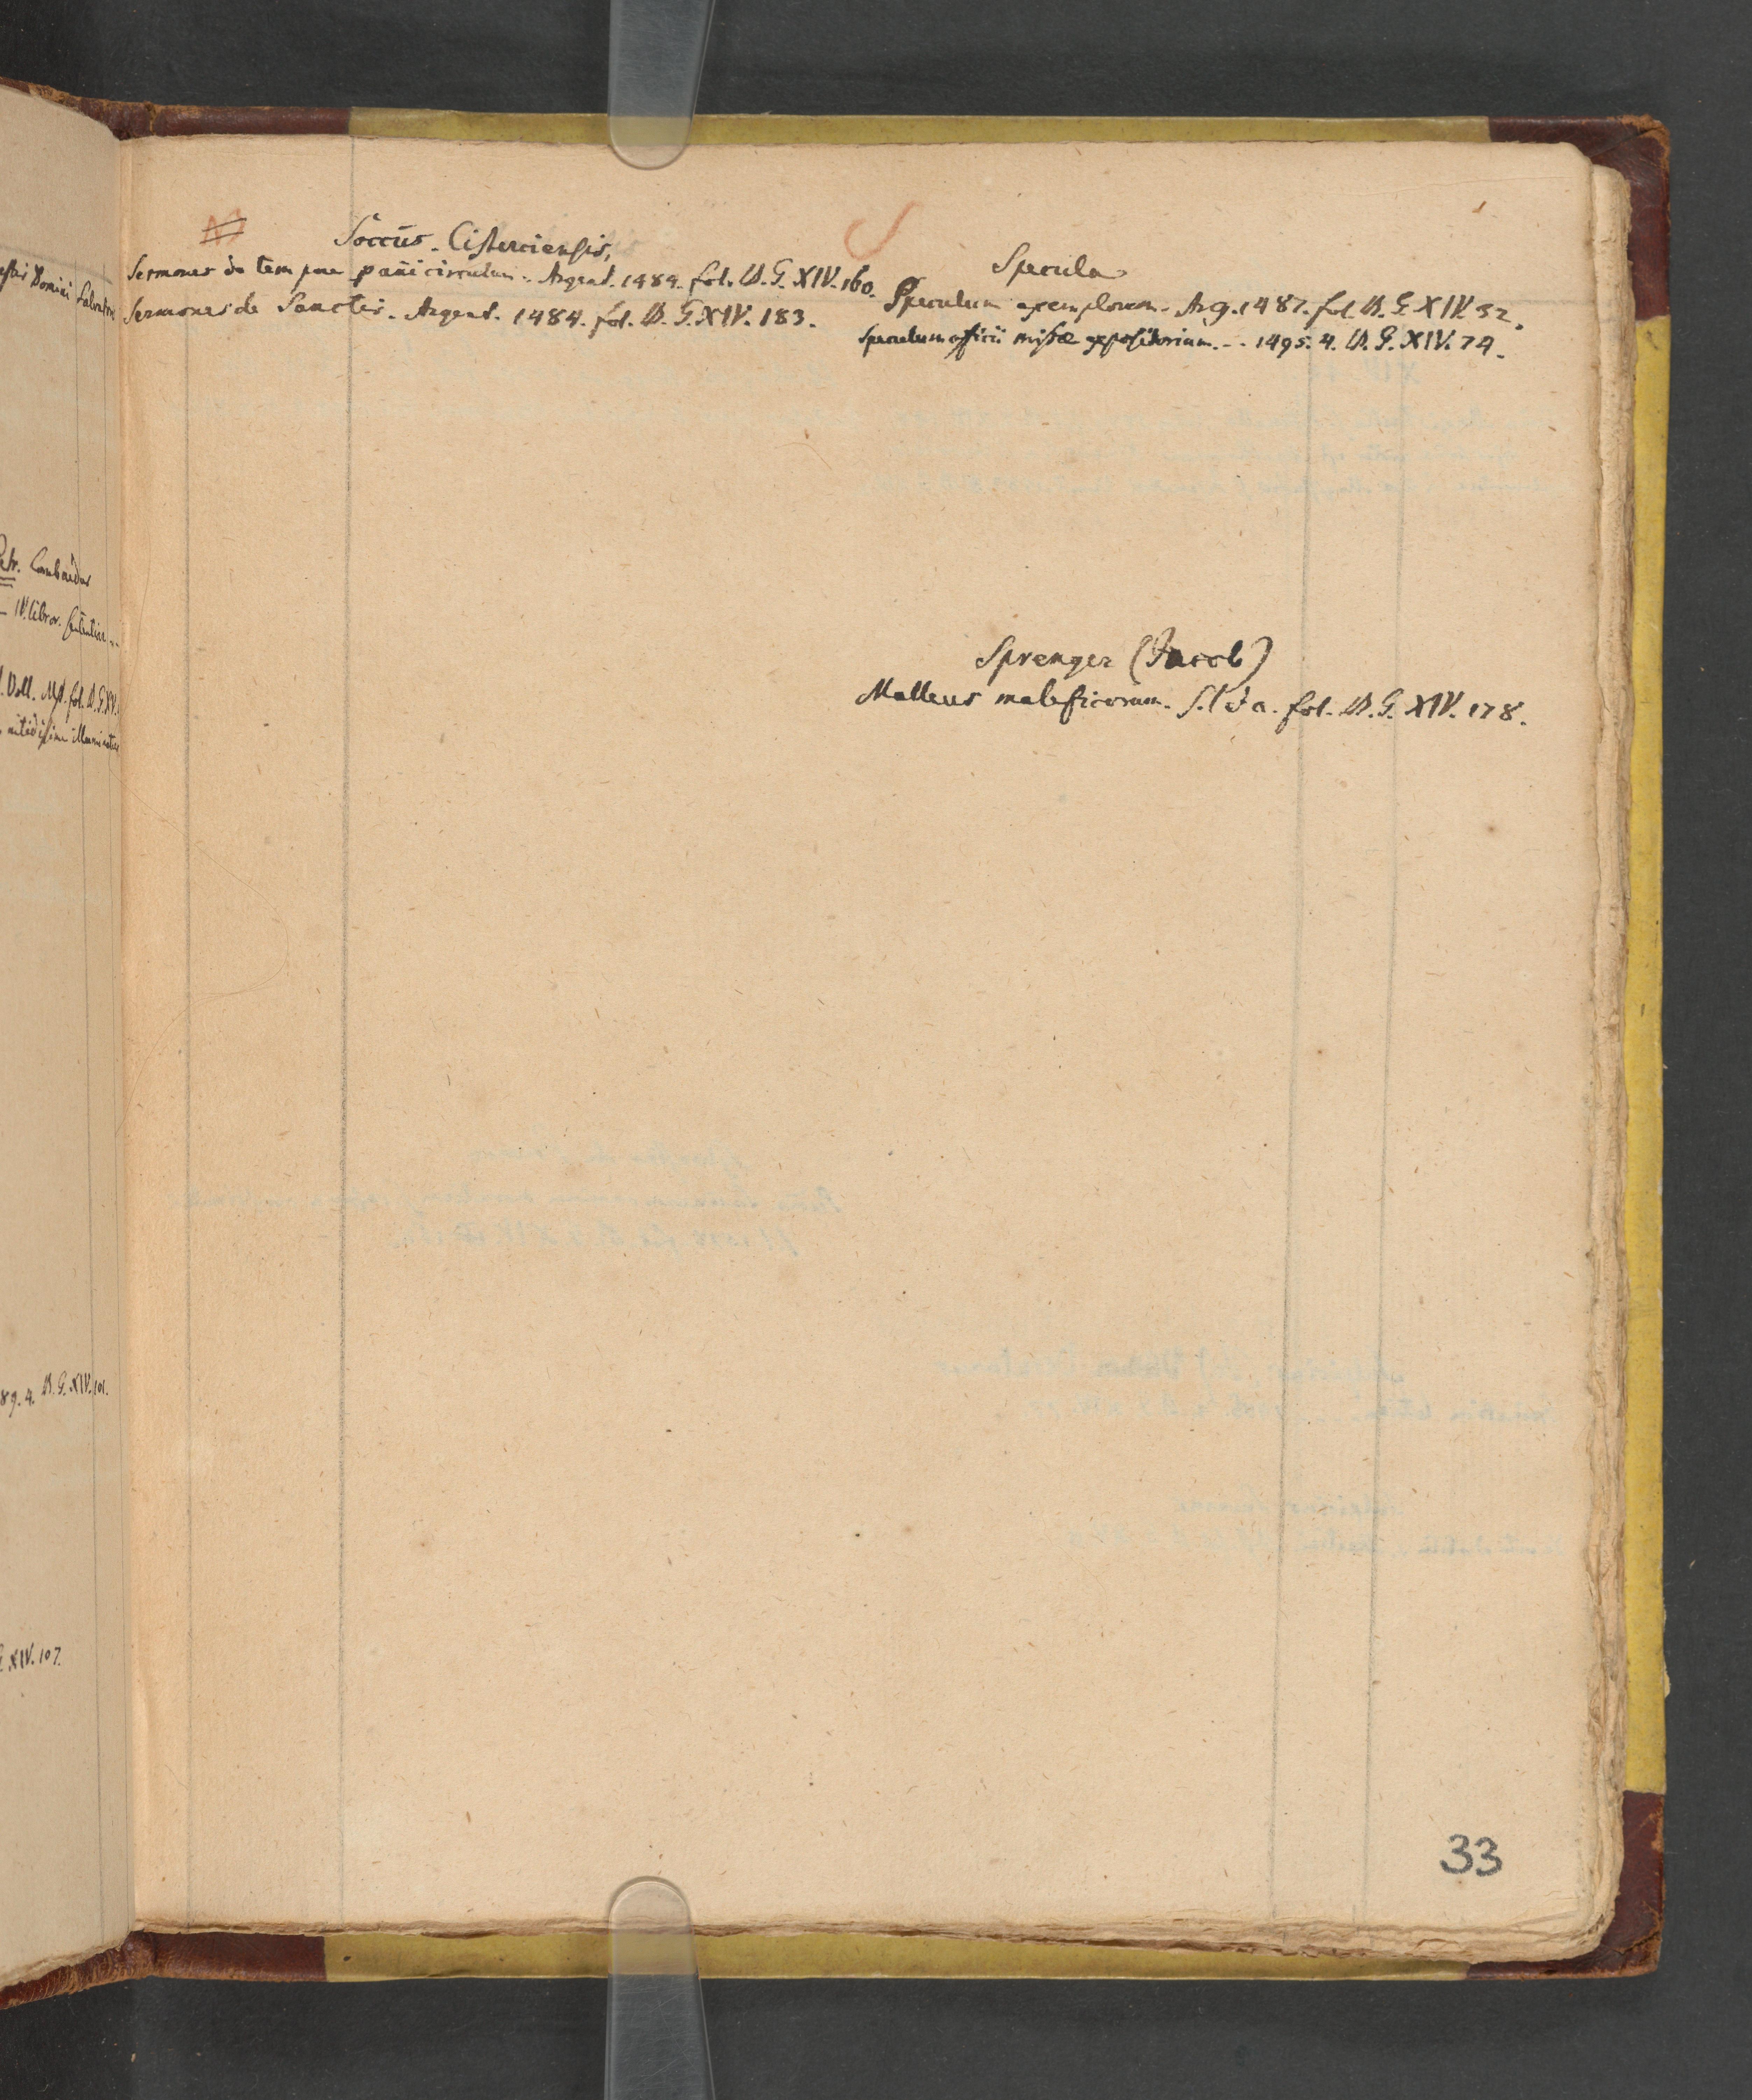 Soccus Cisterciensis,
Sermones de tempore p anni circulum. Argent. 1484. fol. D. G. XIV. 160.
Sermones de Sanctis. Argent. 1484. fol. D. G. XIV. 183.
S
Specula
Speculum exemplorum. Arg. 1487. fol. D. G. XIV. 32.
Speculum officii missæ expositorium. -. 1495. 4. D. G. XIV. 74.
Sprenger (Jacob)
Malleus maleficorum. S. l. et a. fol. D. G. XIV. 178.
33
Domini Salvatoris
Petr. Lombardus
IV. libror. Sententiar.
Voll. Mst. fol. D. G. XV.
nitidissime illuminatus
89. 4. D. G. XIV. 101.
G. XIV. 107.